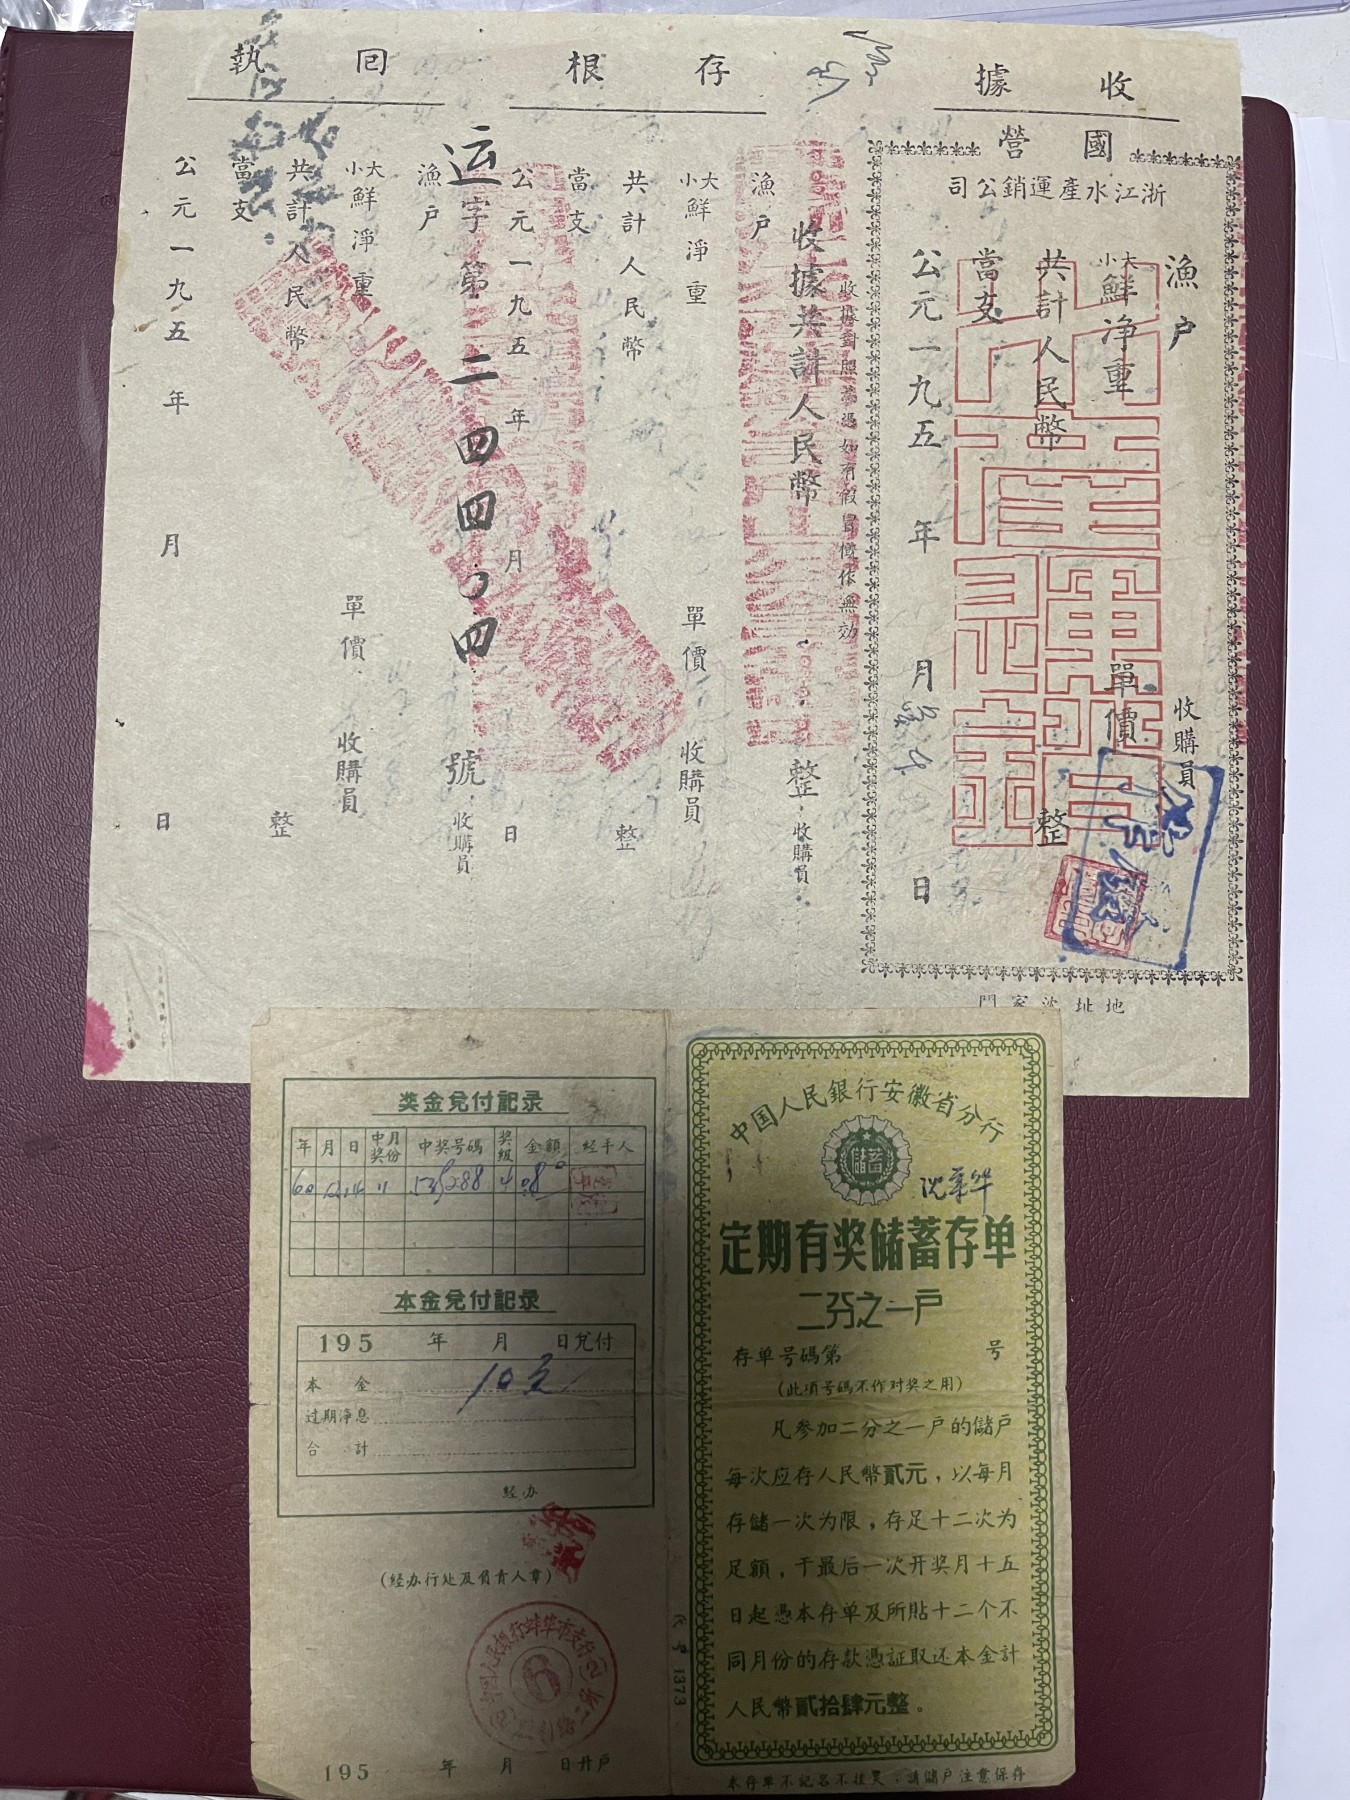 收據
國營
浙江水產運銷公司
漁户
收購員
大小鮮净重 單價
共計人民幣 整
當支
公元一九五 年 月 日
地址沈家門
收據對照為憑如有假冒懂作無効
收據共計人民幣 整 收購員
存根
漁户
大小鮮淨重 單價 收購員
共計人民幣 整
當支
公元一九五 年 月 日
运字第二四四〇四號 收購員
回執
漁户
大小鮮淨重 單價 收購員
共計人民幣 整
當支
公元一九五 年 月 日
中国人民銀行安徽省分行
儲蓄
定期有奖储蓄存单
二分之一户
存单号碼第 号
(此項号碼不作对奖之用)
凡參加二分之一戶的儲戶
每次应存人民幣貳元，以每月
存儲一次为限，存足十二次为
足額，于最后一次开奖月十五
日起憑本存单及所貼十二个不
同月份的存款憑証取还本金計
人民幣貳拾肆元整。
本存单不記名不挂失，請儲戶注意保存
代号 1373
奖金兌付記录
年 月 日 中奖月份 中奖号碼 奖級 金額 经手人
60 12 14 11
本金兌付記录
195 年 月 日兌付
本金 10元
过期净息
合計
经办
(经办行处及負責人章)
中国人民銀行蚌埠市支行
6
195 年 月 日开戶